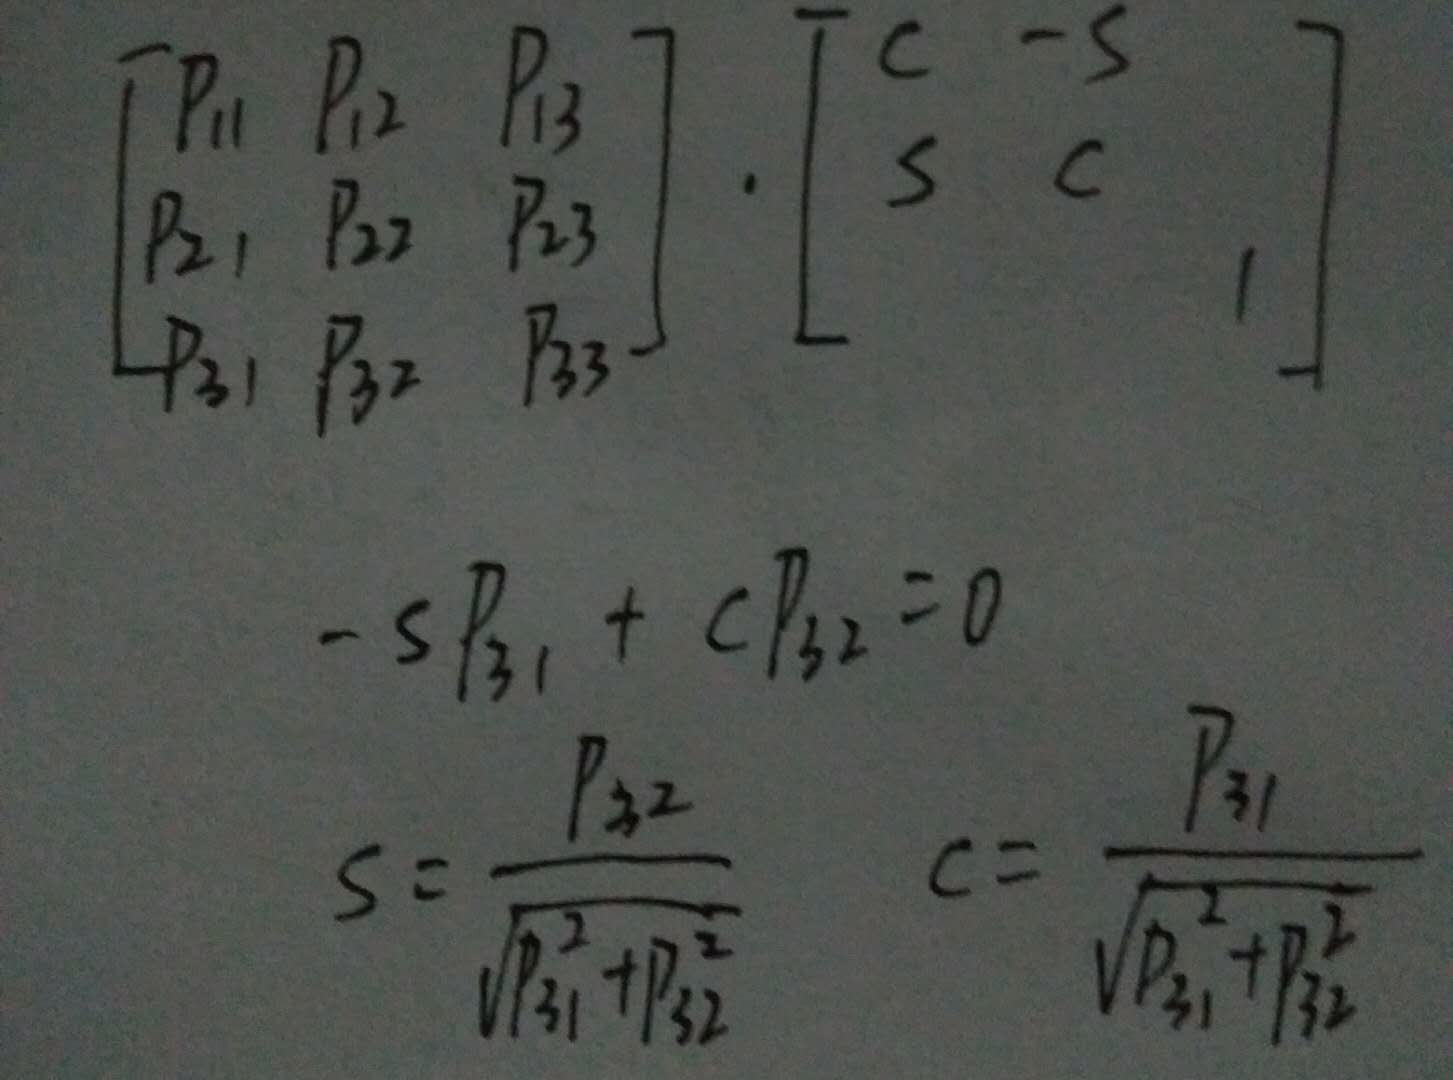 [P11 P12 P13] · [c -s]
[P21 P22 P23] [s c]
[P31 P32 P33] [1]
-sP31 + cP32 = 0
s = P32 / √(P31² + P32²) c = P31 / √(P31² + P32²)